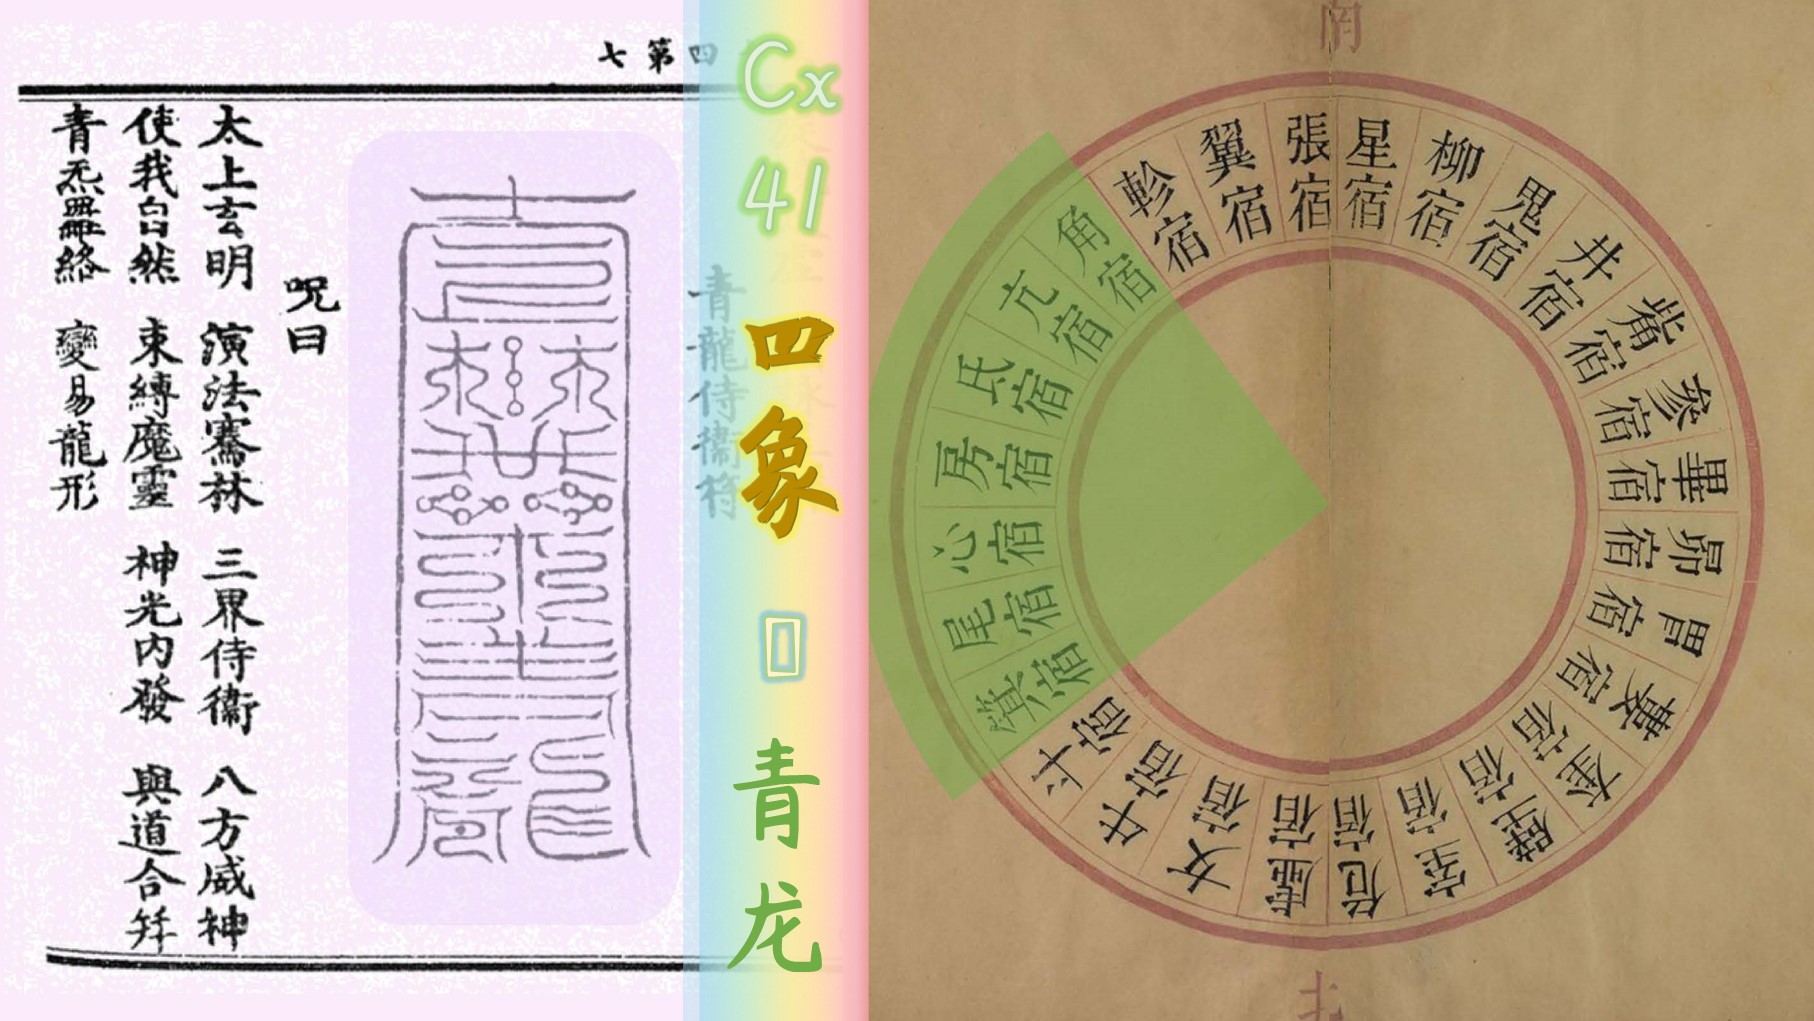 四第七
青龍侍衞符
呪曰
太上玄明 演法騫林 三界侍衞 八方威神
使我自然 束縛魔靈 神光内發 與道合
青炁 絡 變易龍形
Cx
41
四象
青龙
南
角宿
亢宿
氐宿
房宿
心宿
尾宿
箕宿
斗宿
牛宿
女宿
虛宿
危宿
室宿
壁宿
奎宿
婁宿
胃宿
昴宿
畢宿
參宿
觜宿
井宿
鬼宿
柳宿
星宿
張宿
翼宿
軫宿
北